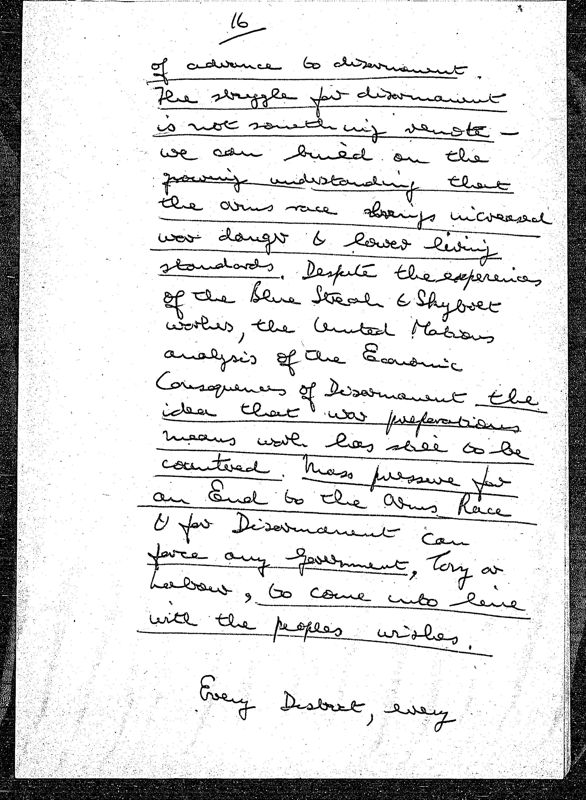 16
of advance to disarmament.
The struggle for disarmament
is not something remote –
we can build on the
growing understanding that
the arms race brings increased
war danger & lower living
standards. Despite the experiences
of the Blue Streak & Skybolt
workers, the United Nations
analysis of the Economic
Consequences of Disarmament the
idea that war preparations
means work has still to be
countered. Mass pressure for
an End to the Arms Race
& for Disarmament can
force any Government, Tory or
Labour, to come into line
with the peoples wishes.
Every District, every